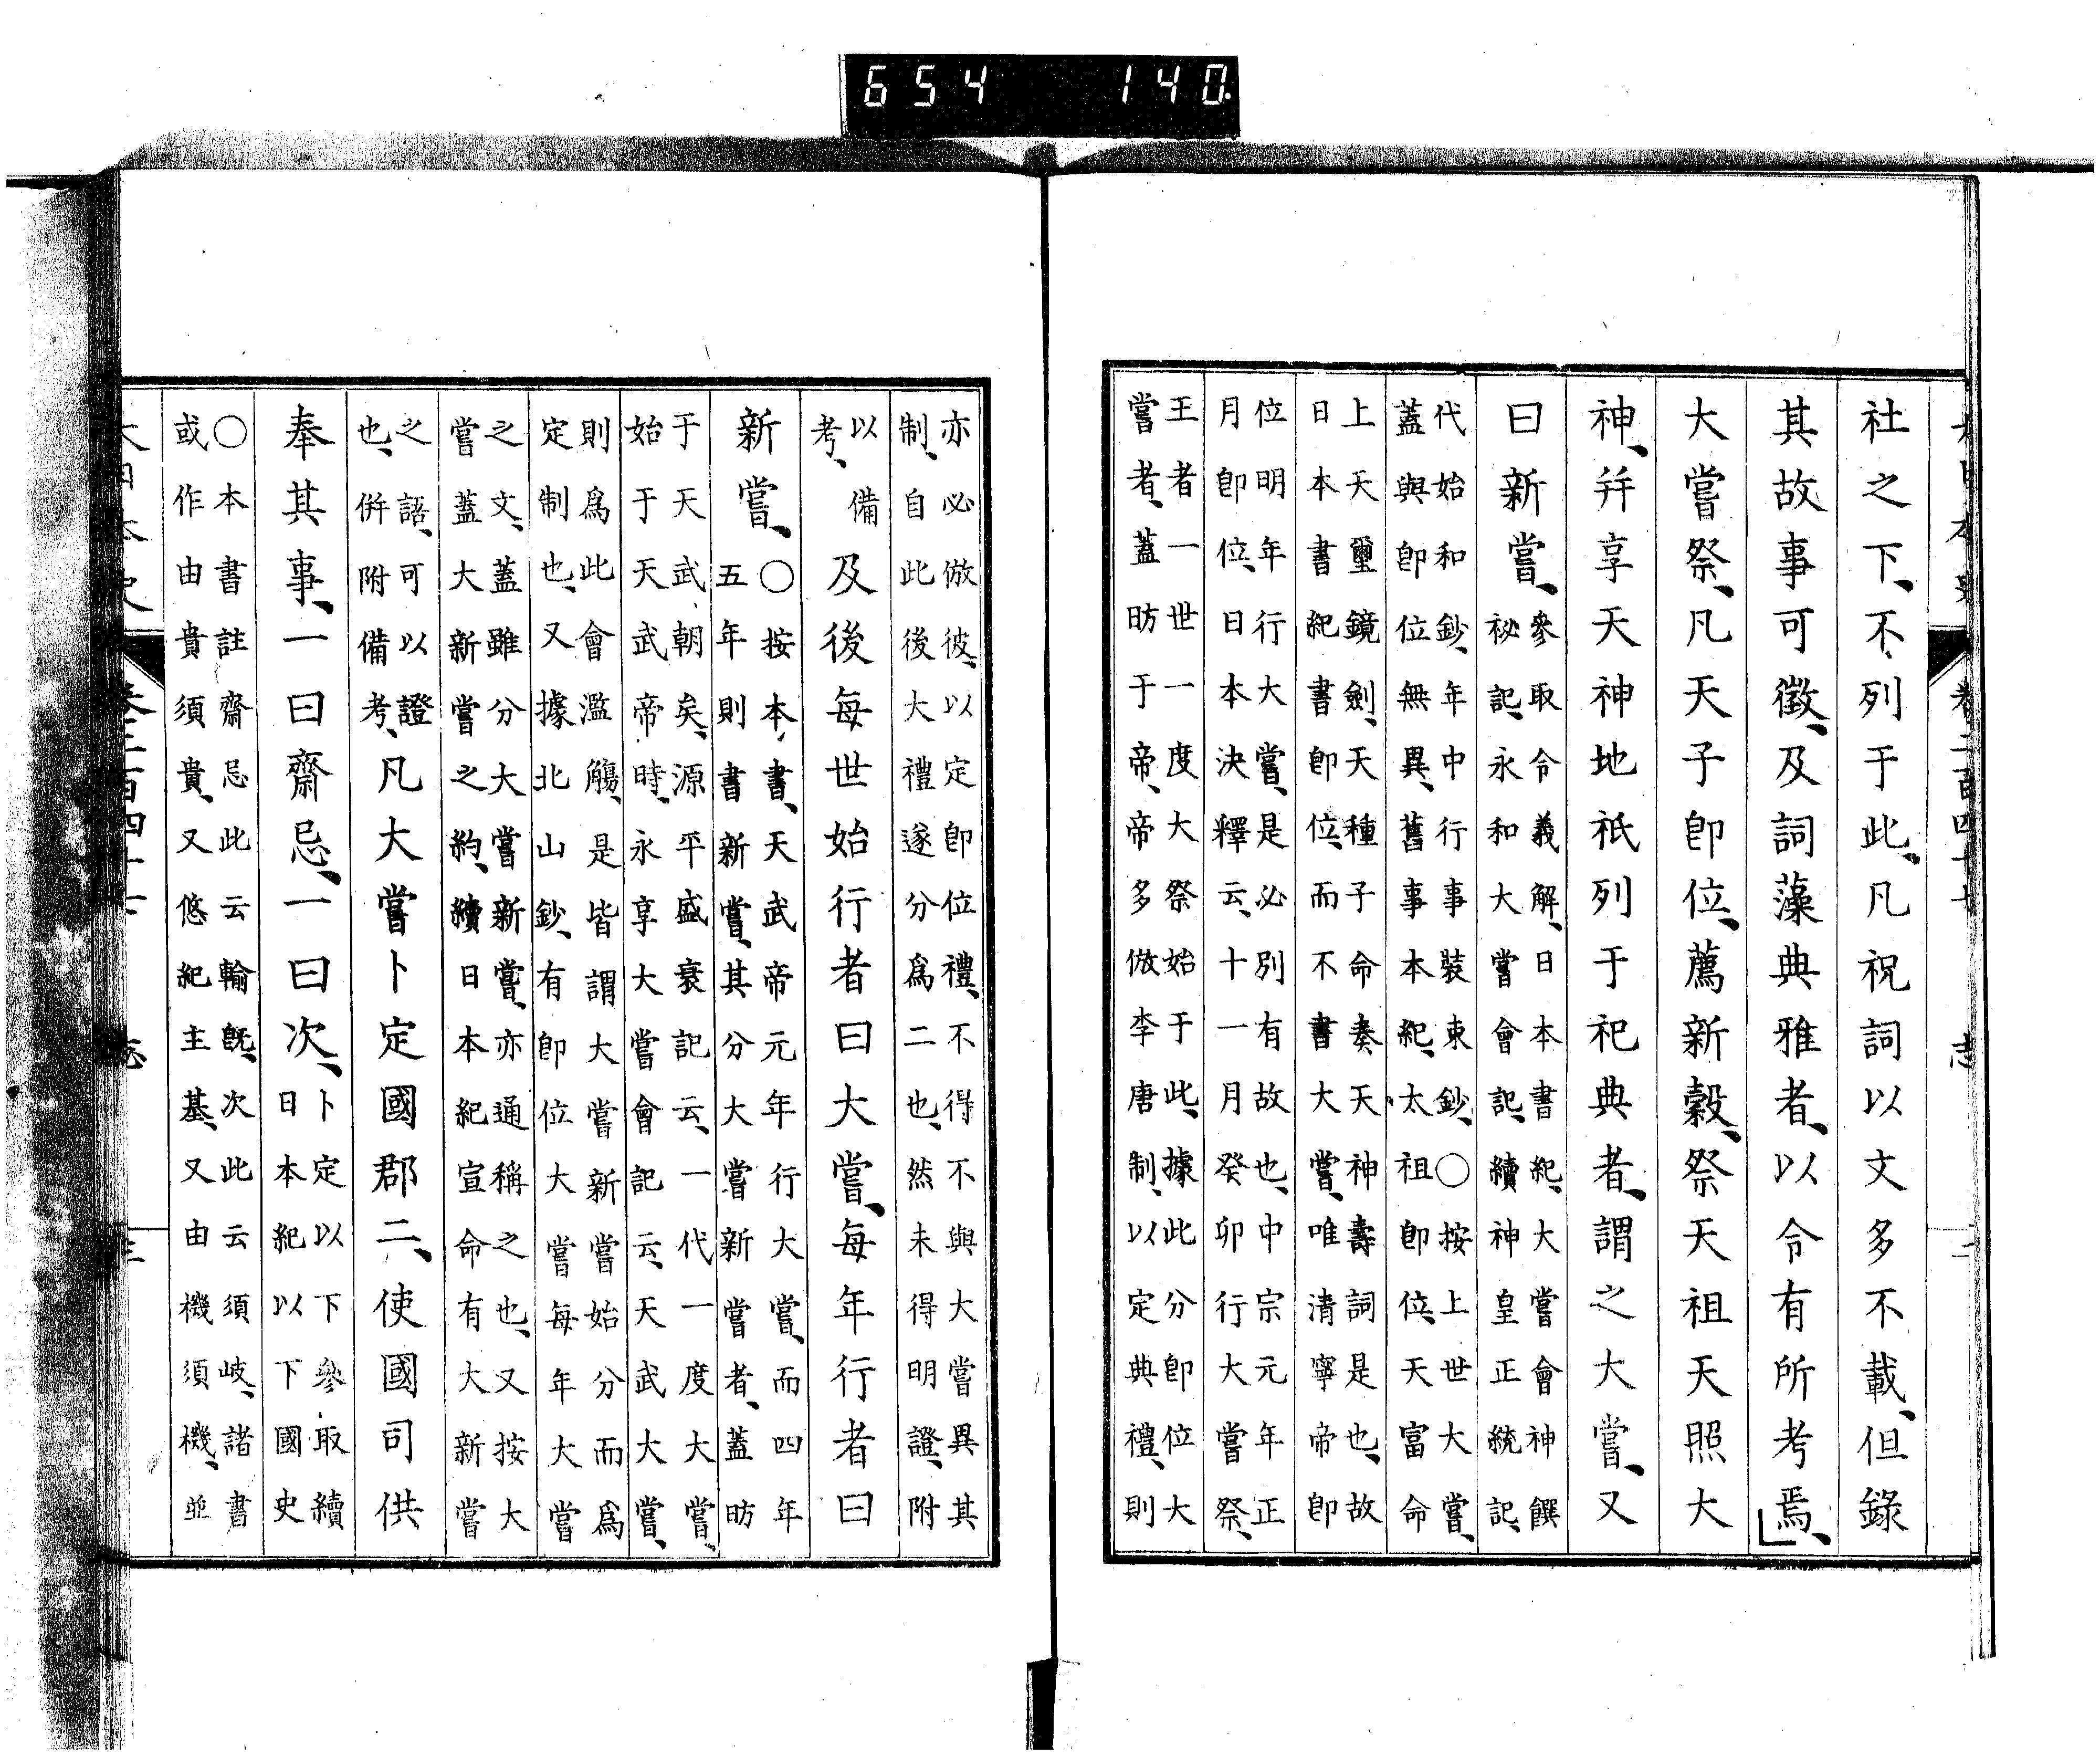 大日本史 卷二百四十七 志 二
社之下、不列于此、凡祝詞以文多不載、但錄
其故事可徵、及詞藻典雅者、以令有所考焉、」
大嘗祭、凡天子卽位、薦新穀、祭天祖天照大
神、幷享天神地祇列于祀典者、謂之大嘗、又
曰新嘗、
參取令義解、日本書紀、大嘗會神饌
祕記、永和大嘗會記、續神皇正統記、
代始和鈔、年中行事裝束鈔、○按上世大嘗、
蓋與卽位無異、舊事本紀、太祖卽位、天富命
上天璽鏡劍、天種子命奏天神壽詞是也、故
日本書紀書卽位、而不書大嘗、唯清寧帝卽
位明年行大嘗、是必別有故也、中宗元年正
月卽位、日本決釋云、十一月癸卯行大嘗祭、
王者一世一度大祭始于此、據此分卽位大
嘗者、蓋昉于帝、帝多倣李唐制、以定典禮、則
亦必倣彼、以定卽位禮、不得不與大嘗異其
制、自此後大禮遂分爲二也、然未得明證、附
以備
考、
及後每世始行者曰大嘗、每年行者曰
新嘗、
○按本書、天武帝元年行大嘗、而四年
五年則書新嘗、其分大嘗新嘗者、蓋昉
于天武朝矣、源平盛衰記云、一代一度大嘗、
始于天武帝時、永享大嘗會記云、天武大嘗、
則爲此會濫觴、是皆謂大嘗新嘗始分而爲
定制也、又據北山鈔、有卽位大嘗每年大嘗
之文、蓋雖分大嘗新嘗、亦通稱之也、又按大
嘗蓋大新嘗之約、續日本紀宣命有大新嘗
之語、可以證
也、倂附備考、
凡大嘗卜定國郡二、使國司供
奉其事、一曰齋忌、一曰次、
卜定以下參取續
日本紀以下國史
○本書註齋忌此云輸旣、次此云須岐、諸書
或作由貴須貴、又悠紀主基、又由機須機、並
大日本史 卷二百四十七 志 三
654 140